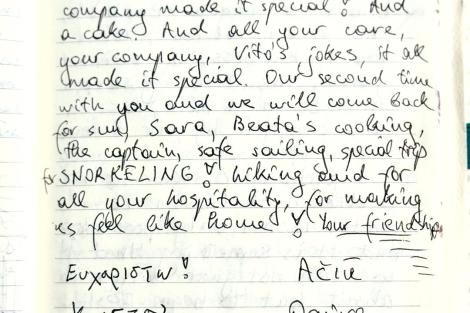 company made it special! And
a cake! And all your care,
your company, Vito's jokes, it all
made it special. Our second time
with you and we will come back
for sun, Sara, Beata's cooking,
the captain, safe sailing, special trip
for SNORKELING! hiking and for
all your hospitality, for making
us feel like home! Your friendship
Ευχαριστω! Ačiū